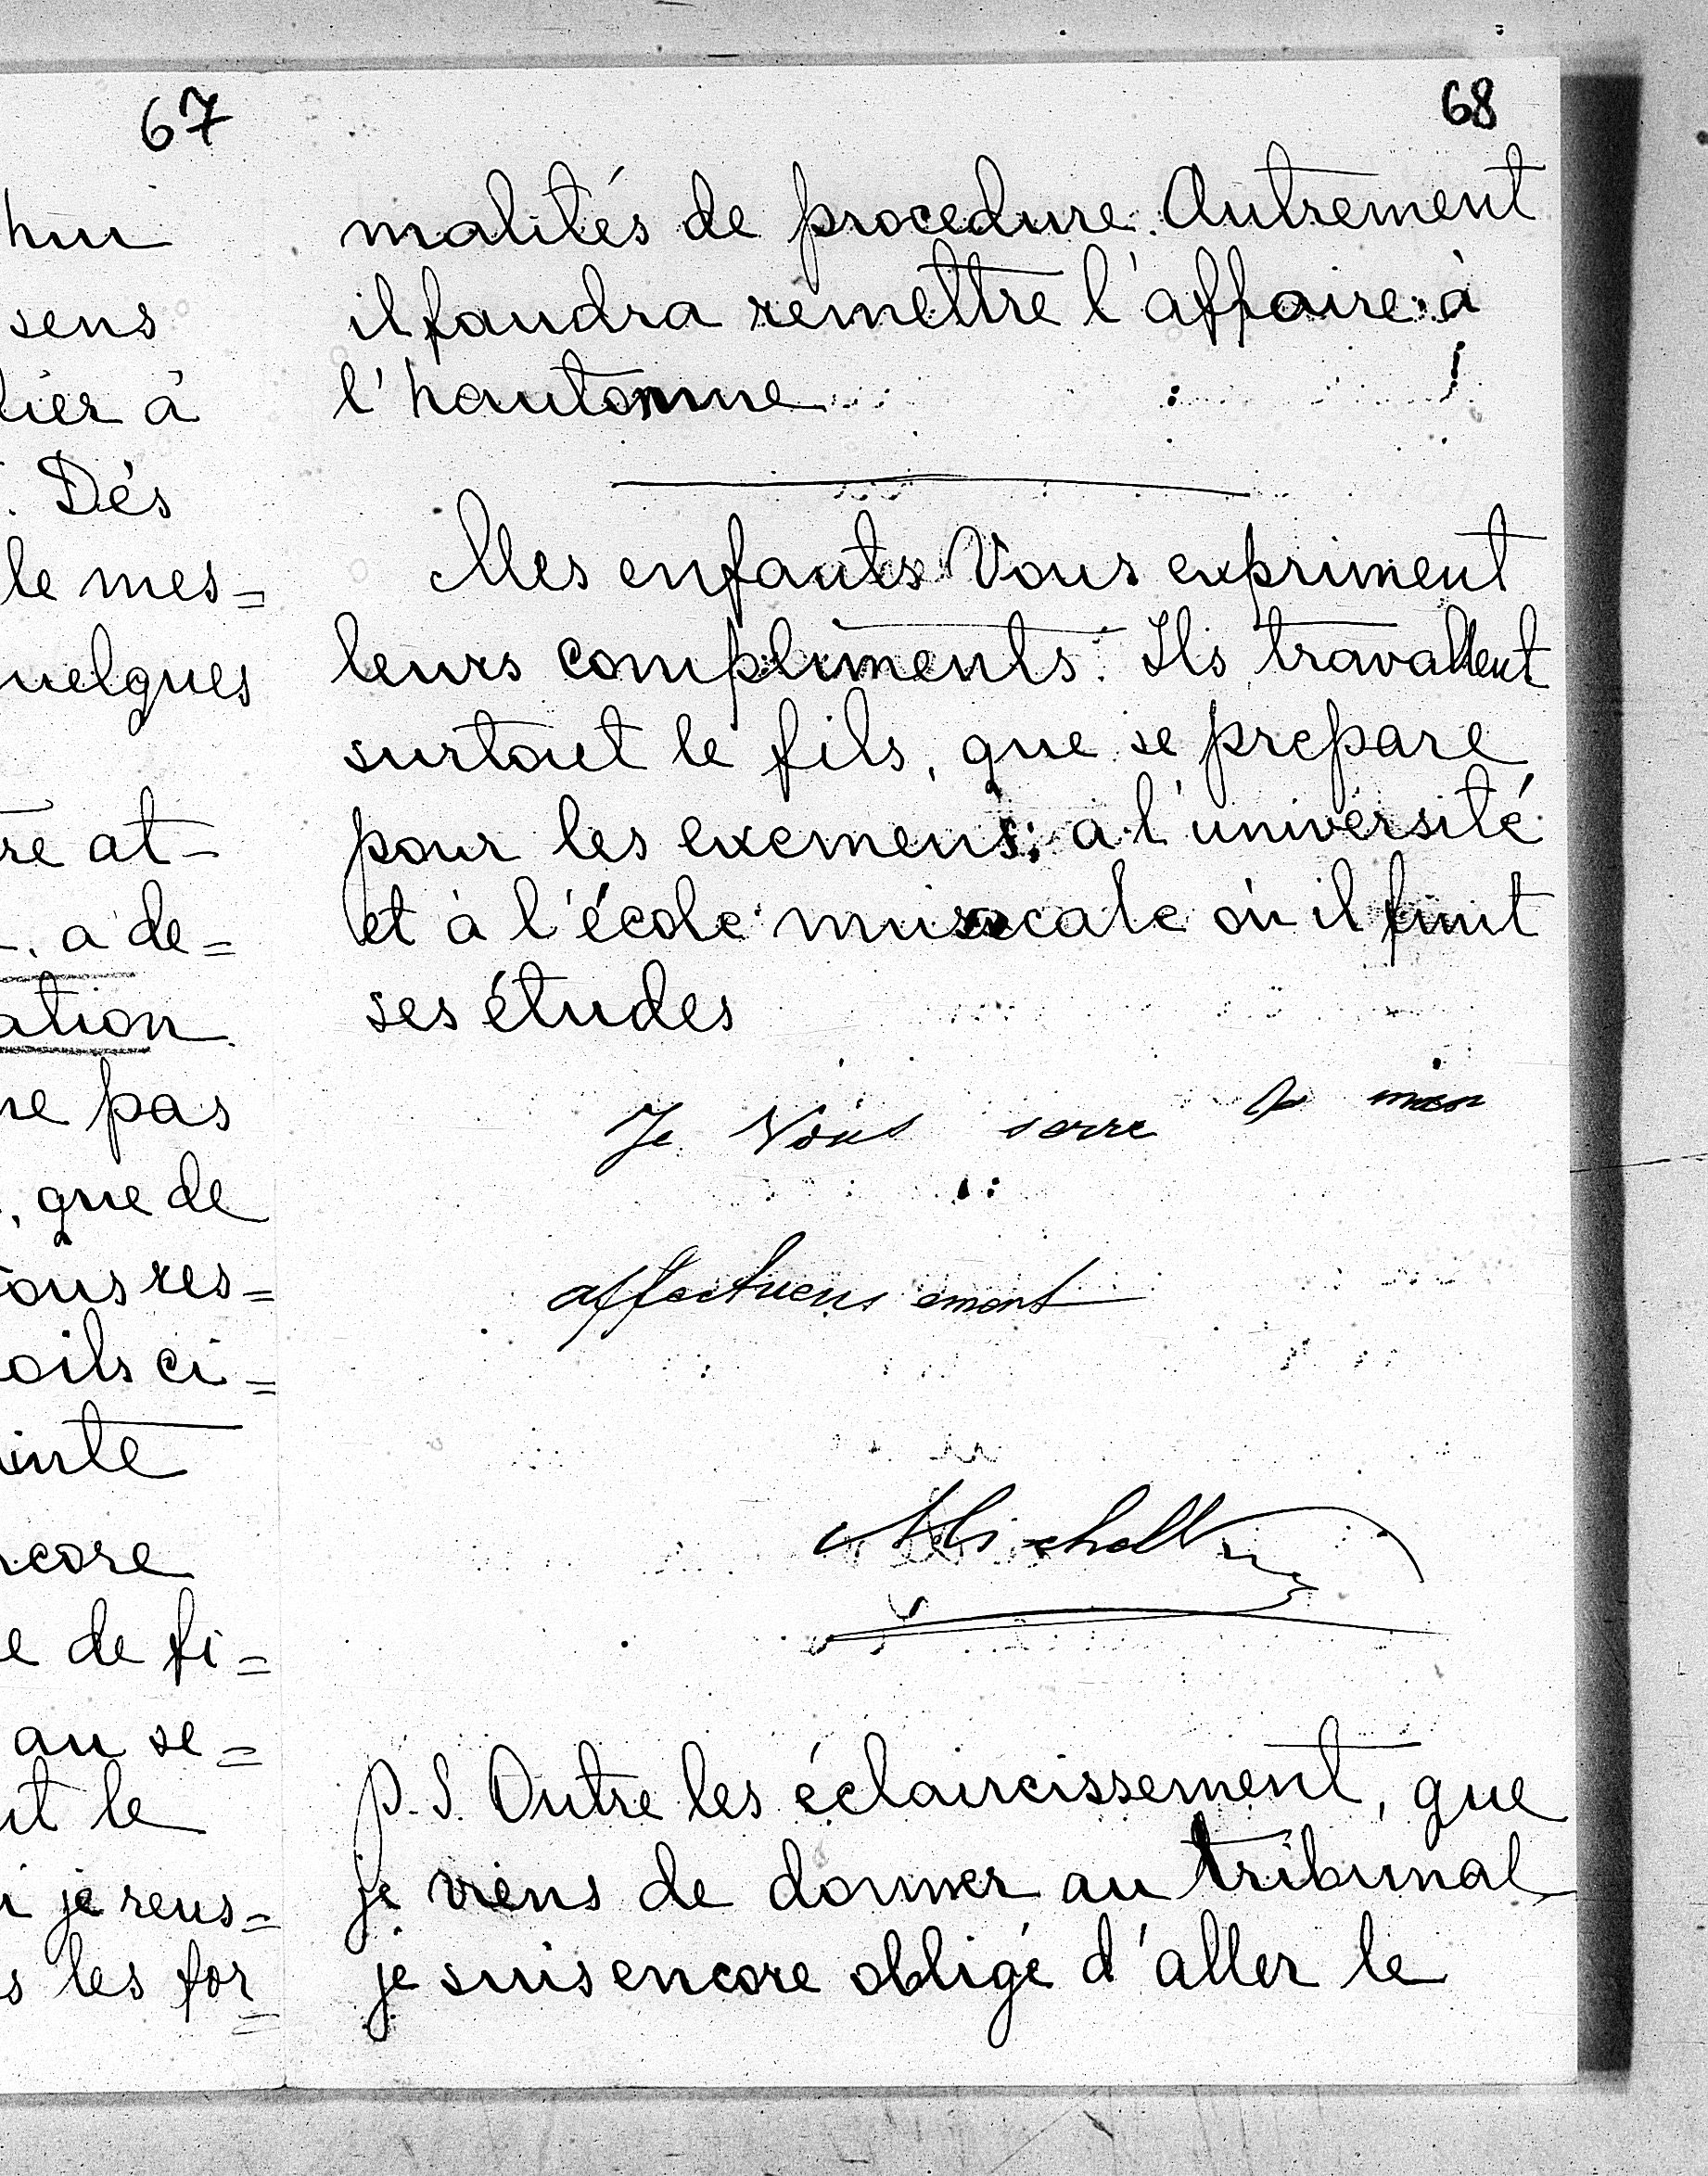 67
hui
sens
tier à
. Dés
le mes=
uelques
re at-
. a de=
ation.
ne pas
, que de
ous res=
oils ci=
inte
ncore
e de fi=
au se=
ut le
i je reus=
s les for=
68
malités de procedure. Autrement
il faudra remettre l'affaire à
l'hautomne
Mes enfants Vous expriment
leurs compliments. Ils travallent
surtout le fils, que se prepare
pour les exemens; a l'université
et à l'école musicale où il finit
ses études
Je Vous serre la main
affectueusement
P.S. Outre les éclaircissement, que
je viens de donner au tribunal
je suis encore obligé d'aller le